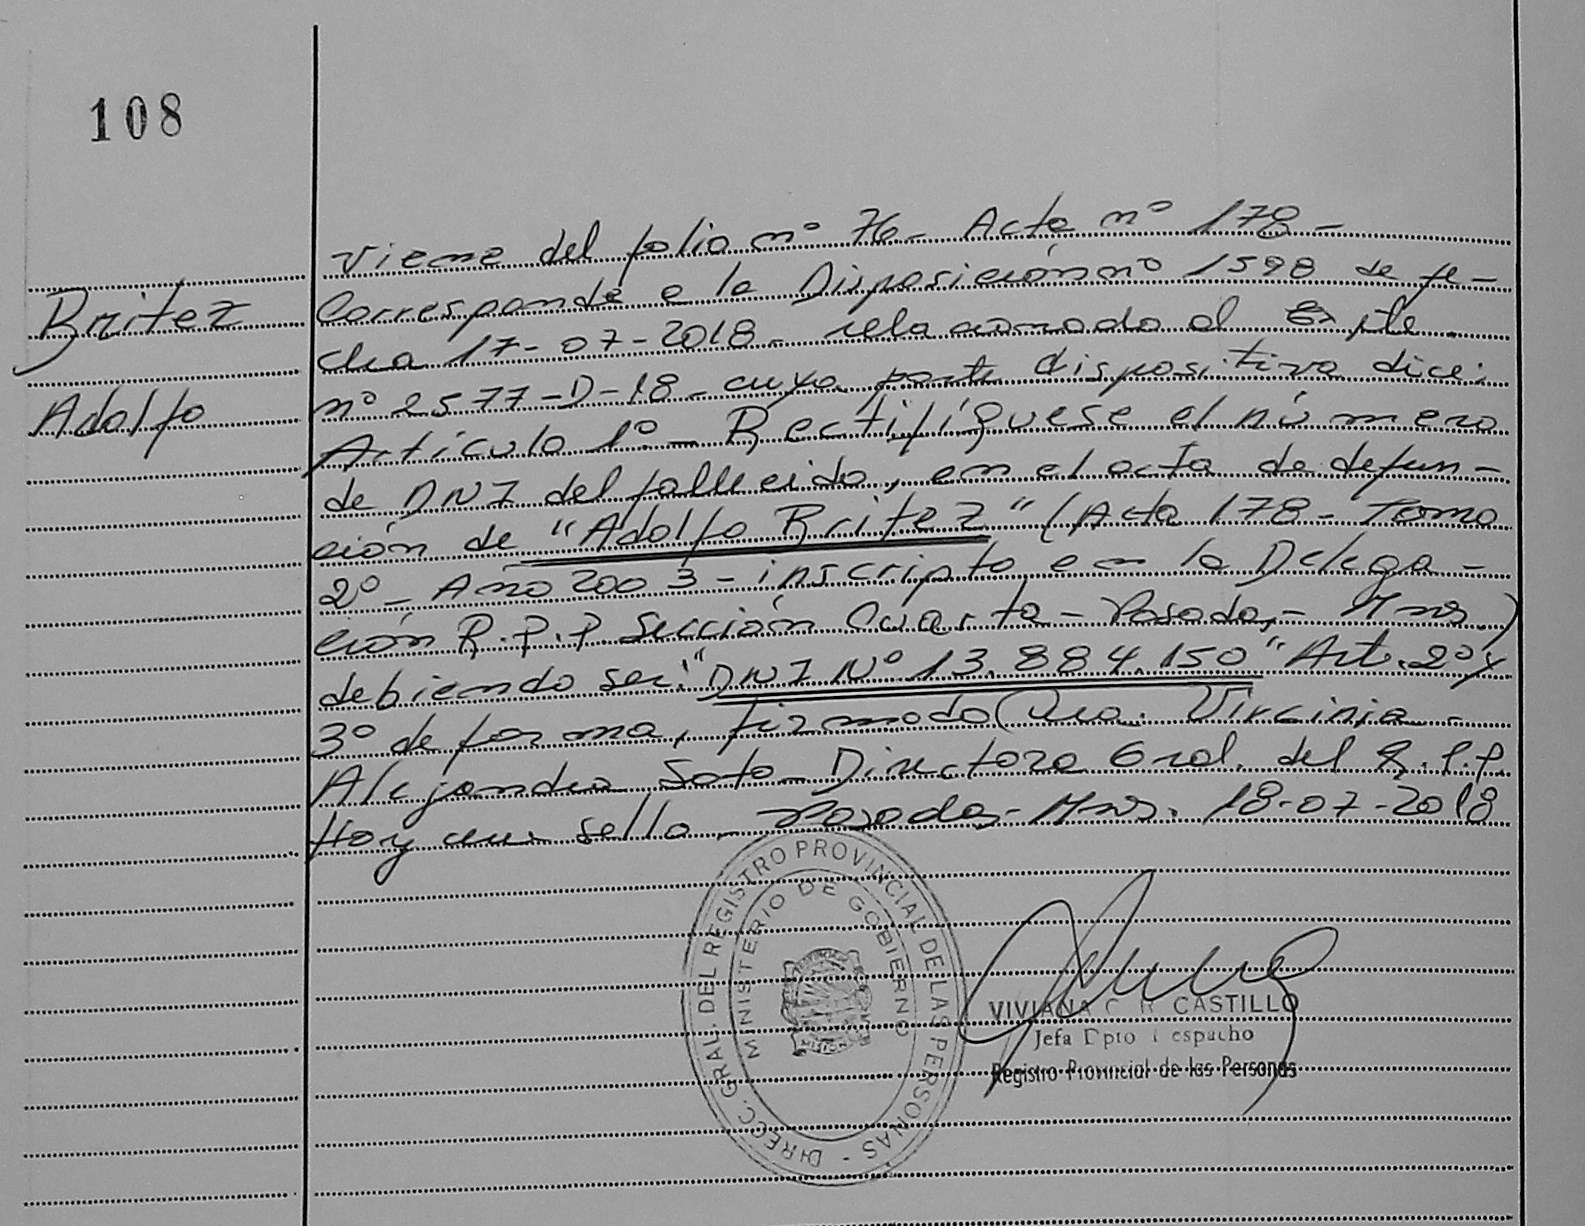 108
Britez
Adolfo
Viene del folio nº 76- Acta nº 178-
Corresponde a la Disposición nº 1598 de fe-
cha 17-07-2018- relacionado al Expte.
nº 2577-D-18- cuya parte dispositiva dice:
Artículo 1º- Rectifíquese el número
de DNI del fallecido, en el acta de defun-
ción de "Adolfo Britez" (Acta 178- Tomo
2º- Año 2003- inscripto en la Delega-
ción R.P.P Sección Cuarta- Posadas- Mnes.)
debiendo ser: "DNI Nº 13.884.150" Art. 2º y
3º de forma, firmado Dra. Virginia
Alejandra Soto- Directora Gral. del R.P.P.
Hay un sello- Posadas- Mnes. 18-07-2018
DIRECC. GRAL. DEL REGISTRO PROVINCIAL DE LAS PERSONAS -
MINISTERIO DE GOBIERNO
VIVIANA C R CASTILLO
Jefa Dpto Despacho
Registro Provincial de las Personas